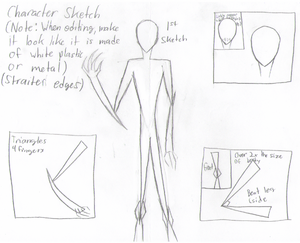 Character Sketch
(Note: When editing, make
it look like it is made
of white plastic
or metal)
(Straiter edges)
1st
Sketch
Triangles
4 fingers
Over 2x the size
of body
Front
Bent leg
side